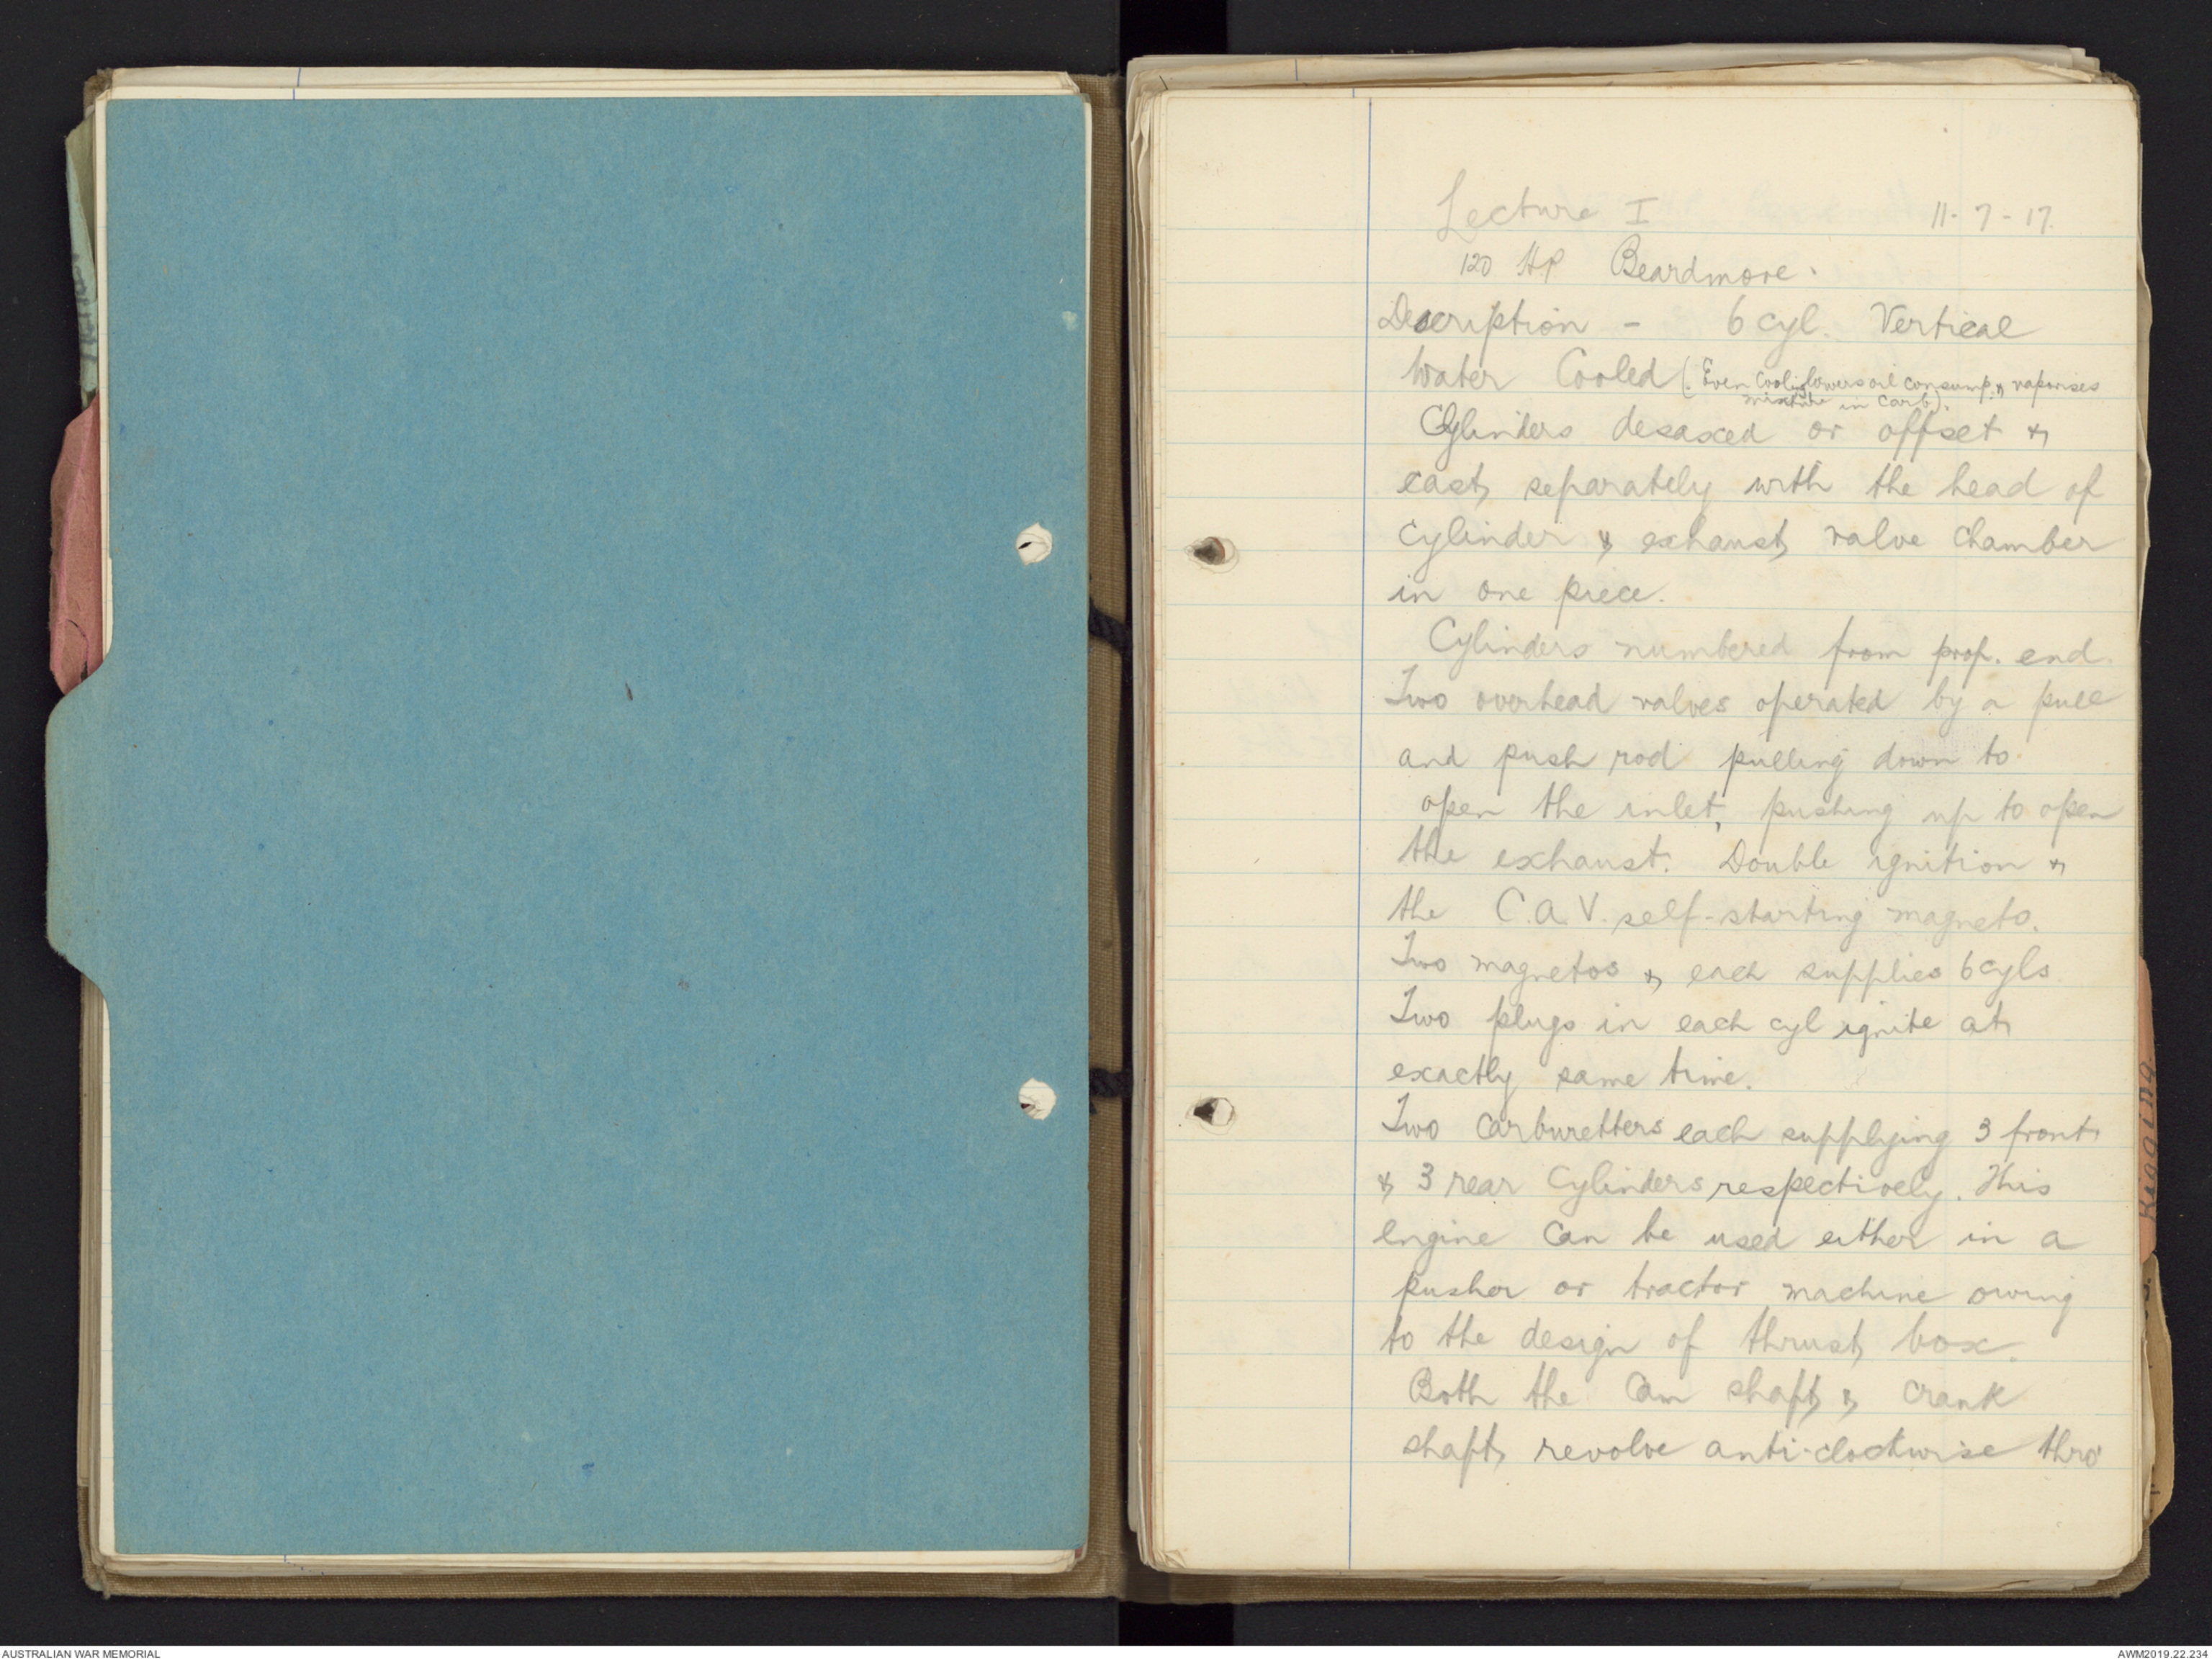 Lecture I 11-7-17.
120 HP Beardmore.
Description - 6 cyl. Vertical
Water Cooled (Even cooling lowers oil consump. & vaporises
mixture in Carb).
Cylinders desaxed or offset &
cast separately with the head of
cylinder & exhaust valve chamber
in one piece.
Cylinders numbered from prop. end.
Two overhead valves operated by a pull
and push rod pulling down to
open the inlet, pushing up to open
the exhaust. Double ignition &
the C.A.V. self-starting magneto.
Two magnetos & each supplies 6 cyls.
Two plugs in each cyl ignite at
exactly same time.
Two Carburetters each supplying 3 front
& 3 rear Cylinders respectively. This
engine can be used either in a
pusher or tractor machine owing
to the design of thrust box.
Both the Cam shaft & crank
shaft revolve anti-clockwise thro'
Rigging
AUSTRALIAN WAR MEMORIAL
AWM2019.22.234